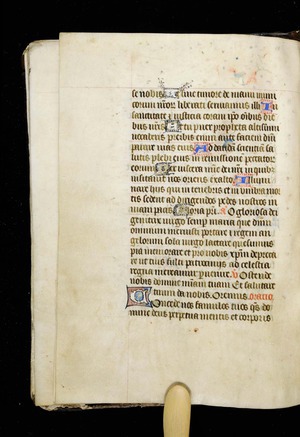 se nobis Ut sine timore de manu inimi
corum nr̄or liberati seruiamus illi In
sanctitate et iusticia coram ip̄o oībus die
bus nr̄is Et tu puer propheta altissimi
uocaberis preibis enim ante faciem dn̄i
parare uias eius Ad dandā scientiā sa
lutis plebi eius in remissionē peccator
eorum Per uiscera mīe dei nr̄i in quib
uisitauit nos oriens ex alto Illumi
nare hiis qui in tenebris et in umbra mor
tis sedent ad dirigendos pedes nostros in
uiam pacis Gloria pr̄i. a O gloriosa dei
genetrix uirgo semp̄ maria que dn̄m
omnium meruisti portare et regem an
gelorum sola uirgo lactare quesumus
pia memorare et pro nobis xp̄m depreca
re ut tuis fulti patrociniis ad celestia
regna mereamur puenire V Ostende
nobis domine mīam tuam Et salutare
tuum da nobis. Oremus. oratio
Concede nos famulos tuos qs̄ do
mine deus perpetua mentis et corporis